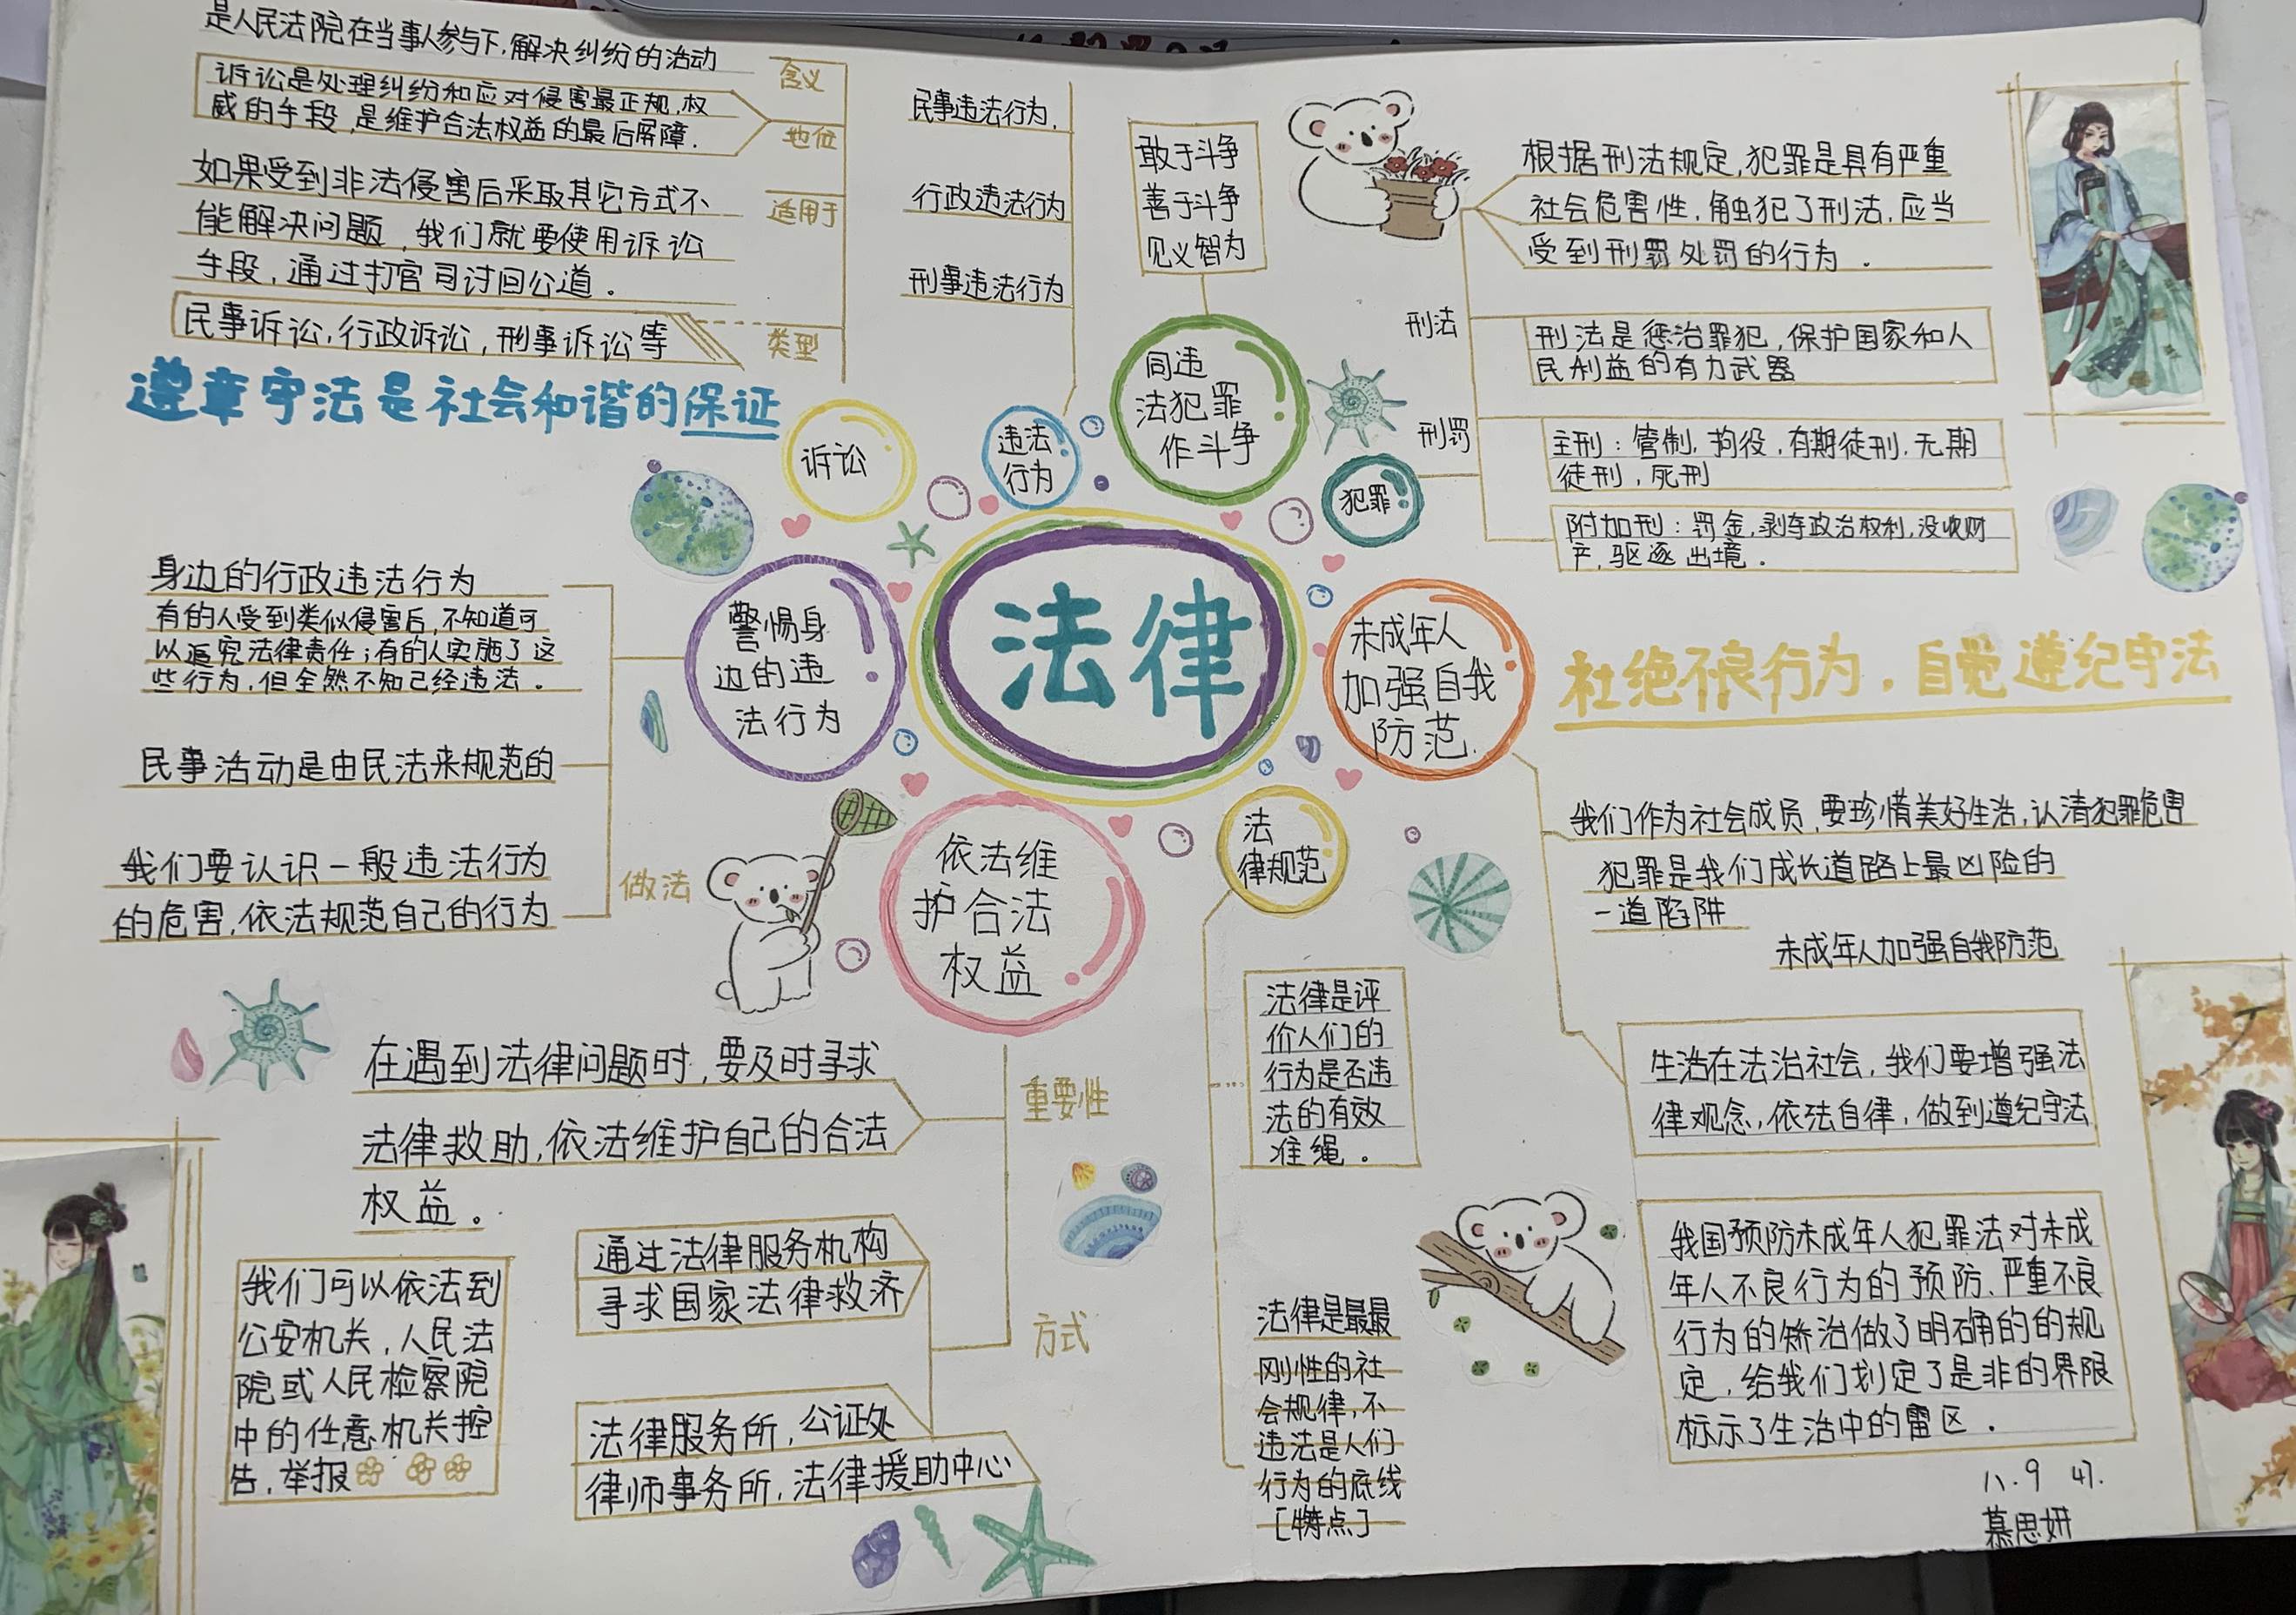 是人民法院在当事人参与下,解决纠纷的活动
含义
诉讼是处理纠纷和应对侵害最正规,权
威的手段,是维护合法权益的最后屏障.
地位
如果受到非法侵害后采取其它方式不
能解决问题,我们就要使用诉讼
手段,通过打官司讨回公道。
适用于
民事诉讼,行政诉讼,刑事诉讼等
类型
遵章守法是社会和谐的保证
诉讼
民事违法行为,
行政违法行为
刑事违法行为
违法
行为
敢于斗争
善于斗争
见义智为
同违
法犯罪
作斗争
根据刑法规定,犯罪是具有严重
社会危害性,触犯了刑法,应当
受到刑罚处罚的行为。
刑法
刑法是惩治罪犯,保护国家和人
民利益的有力武器
刑罚
主刑:管制,拘役,有期徒刑.无期
徒刑,死刑
附加刑:罚金,剥夺政治权利,没收财
产,驱逐出境。
犯罪
身边的行政违法行为
有的人受到类似侵害后,不知道可
以追究法律责任;有的人实施了这
些行为,但全然不知己经违法。
民事活动是由民法来规范的
我们要认识一般违法行为
的危害,依法规范自己的行为
做法
警惕身
边的违
法行为
法律
未成年人
加强自我
防范.
杜绝不良行为,自觉遵纪守法
我们作为社会成员,要珍惜美好生活,认清犯罪危害
犯罪是我们成长道路上最凶险的
一道陷阱
未成年人加强自我防范
生活在法治社会,我们要增强法
律观念,依法自律,做到遵纪守法
我国预防未成年人犯罪法对未成
年人不良行为的预防、严重不良
行为的矫治做了明确的的规
定,给我们划定了是非的界限
标示了生活中的雷区.
依法维
护合法
权益
法
律规范
在遇到法律问题时,要及时寻求
法律救助,依法维护自己的合法
权益。
重要性
我们可以依法到
公安机关,人民法
院或人民检察院
中的任意机关控
告,举报
通过法律服务机构
寻求国家法律救济
方式
法律服务所,公证处
律师事务所,法律援助中心
法律是评
价人们的
行为是否违
法的有效
准绳。
法律是最最
刚性的社
会规律,不
违法是人们
行为的底线
[特点]
八.9 47.
慕思妍